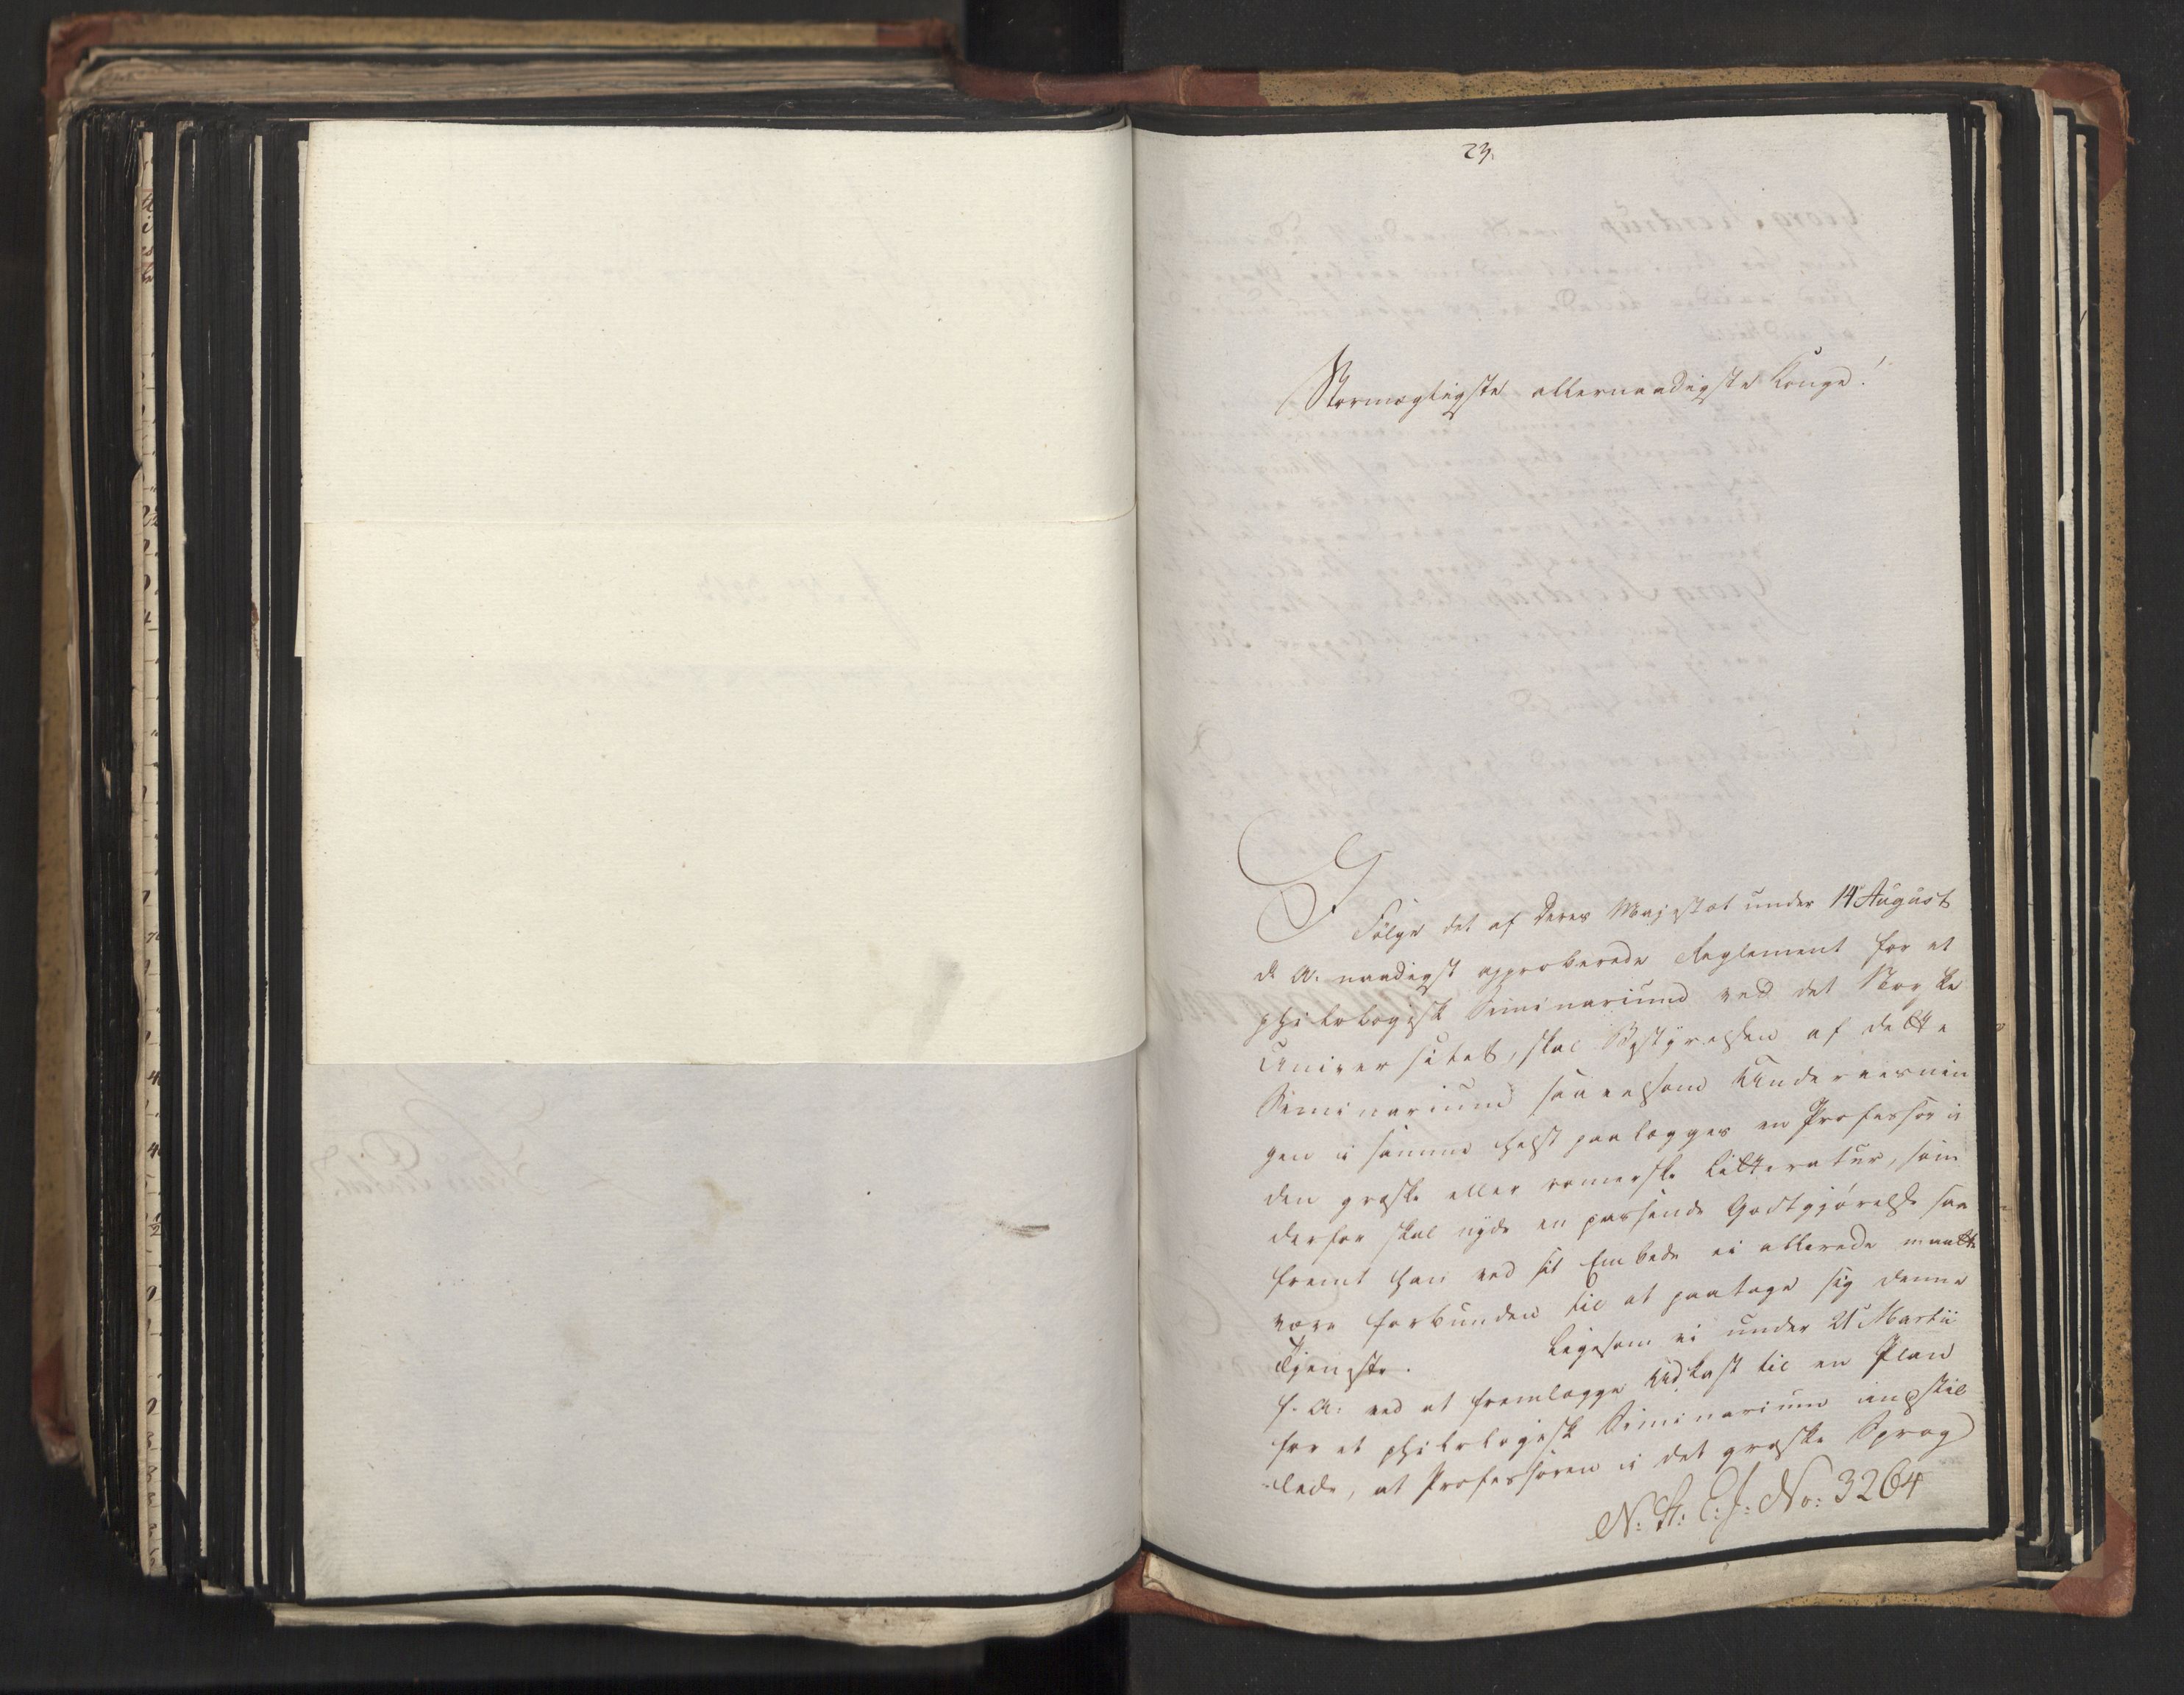 23.
Stormægtigste allernaadigste Konge!
I
Følge det af Deres Majestæt under 14 August
d: A. naadigst approberede Reglement for et
philologisk Siminarium ved det Norske
Universitet, skal Bestyrelsen af dette
Siminarium saavelsom Undervisnin
gen i samme helst paalægges en Professor i
den græske eller romerske Litteratur, som
derfor skal nyde en passende Godtgjørelse saa
fremt han ved sit Embede ei allerede maatte
være forbunden til at paatage sig denne
Tjeneste. Ligesom vi under 21 Martii
f. A: ved at fremlægge Udkast til en Plan
for et philologisk Siminarium indstil
-lede, at Professoren i det græske Sprog
N: St: E: J: No: 3264